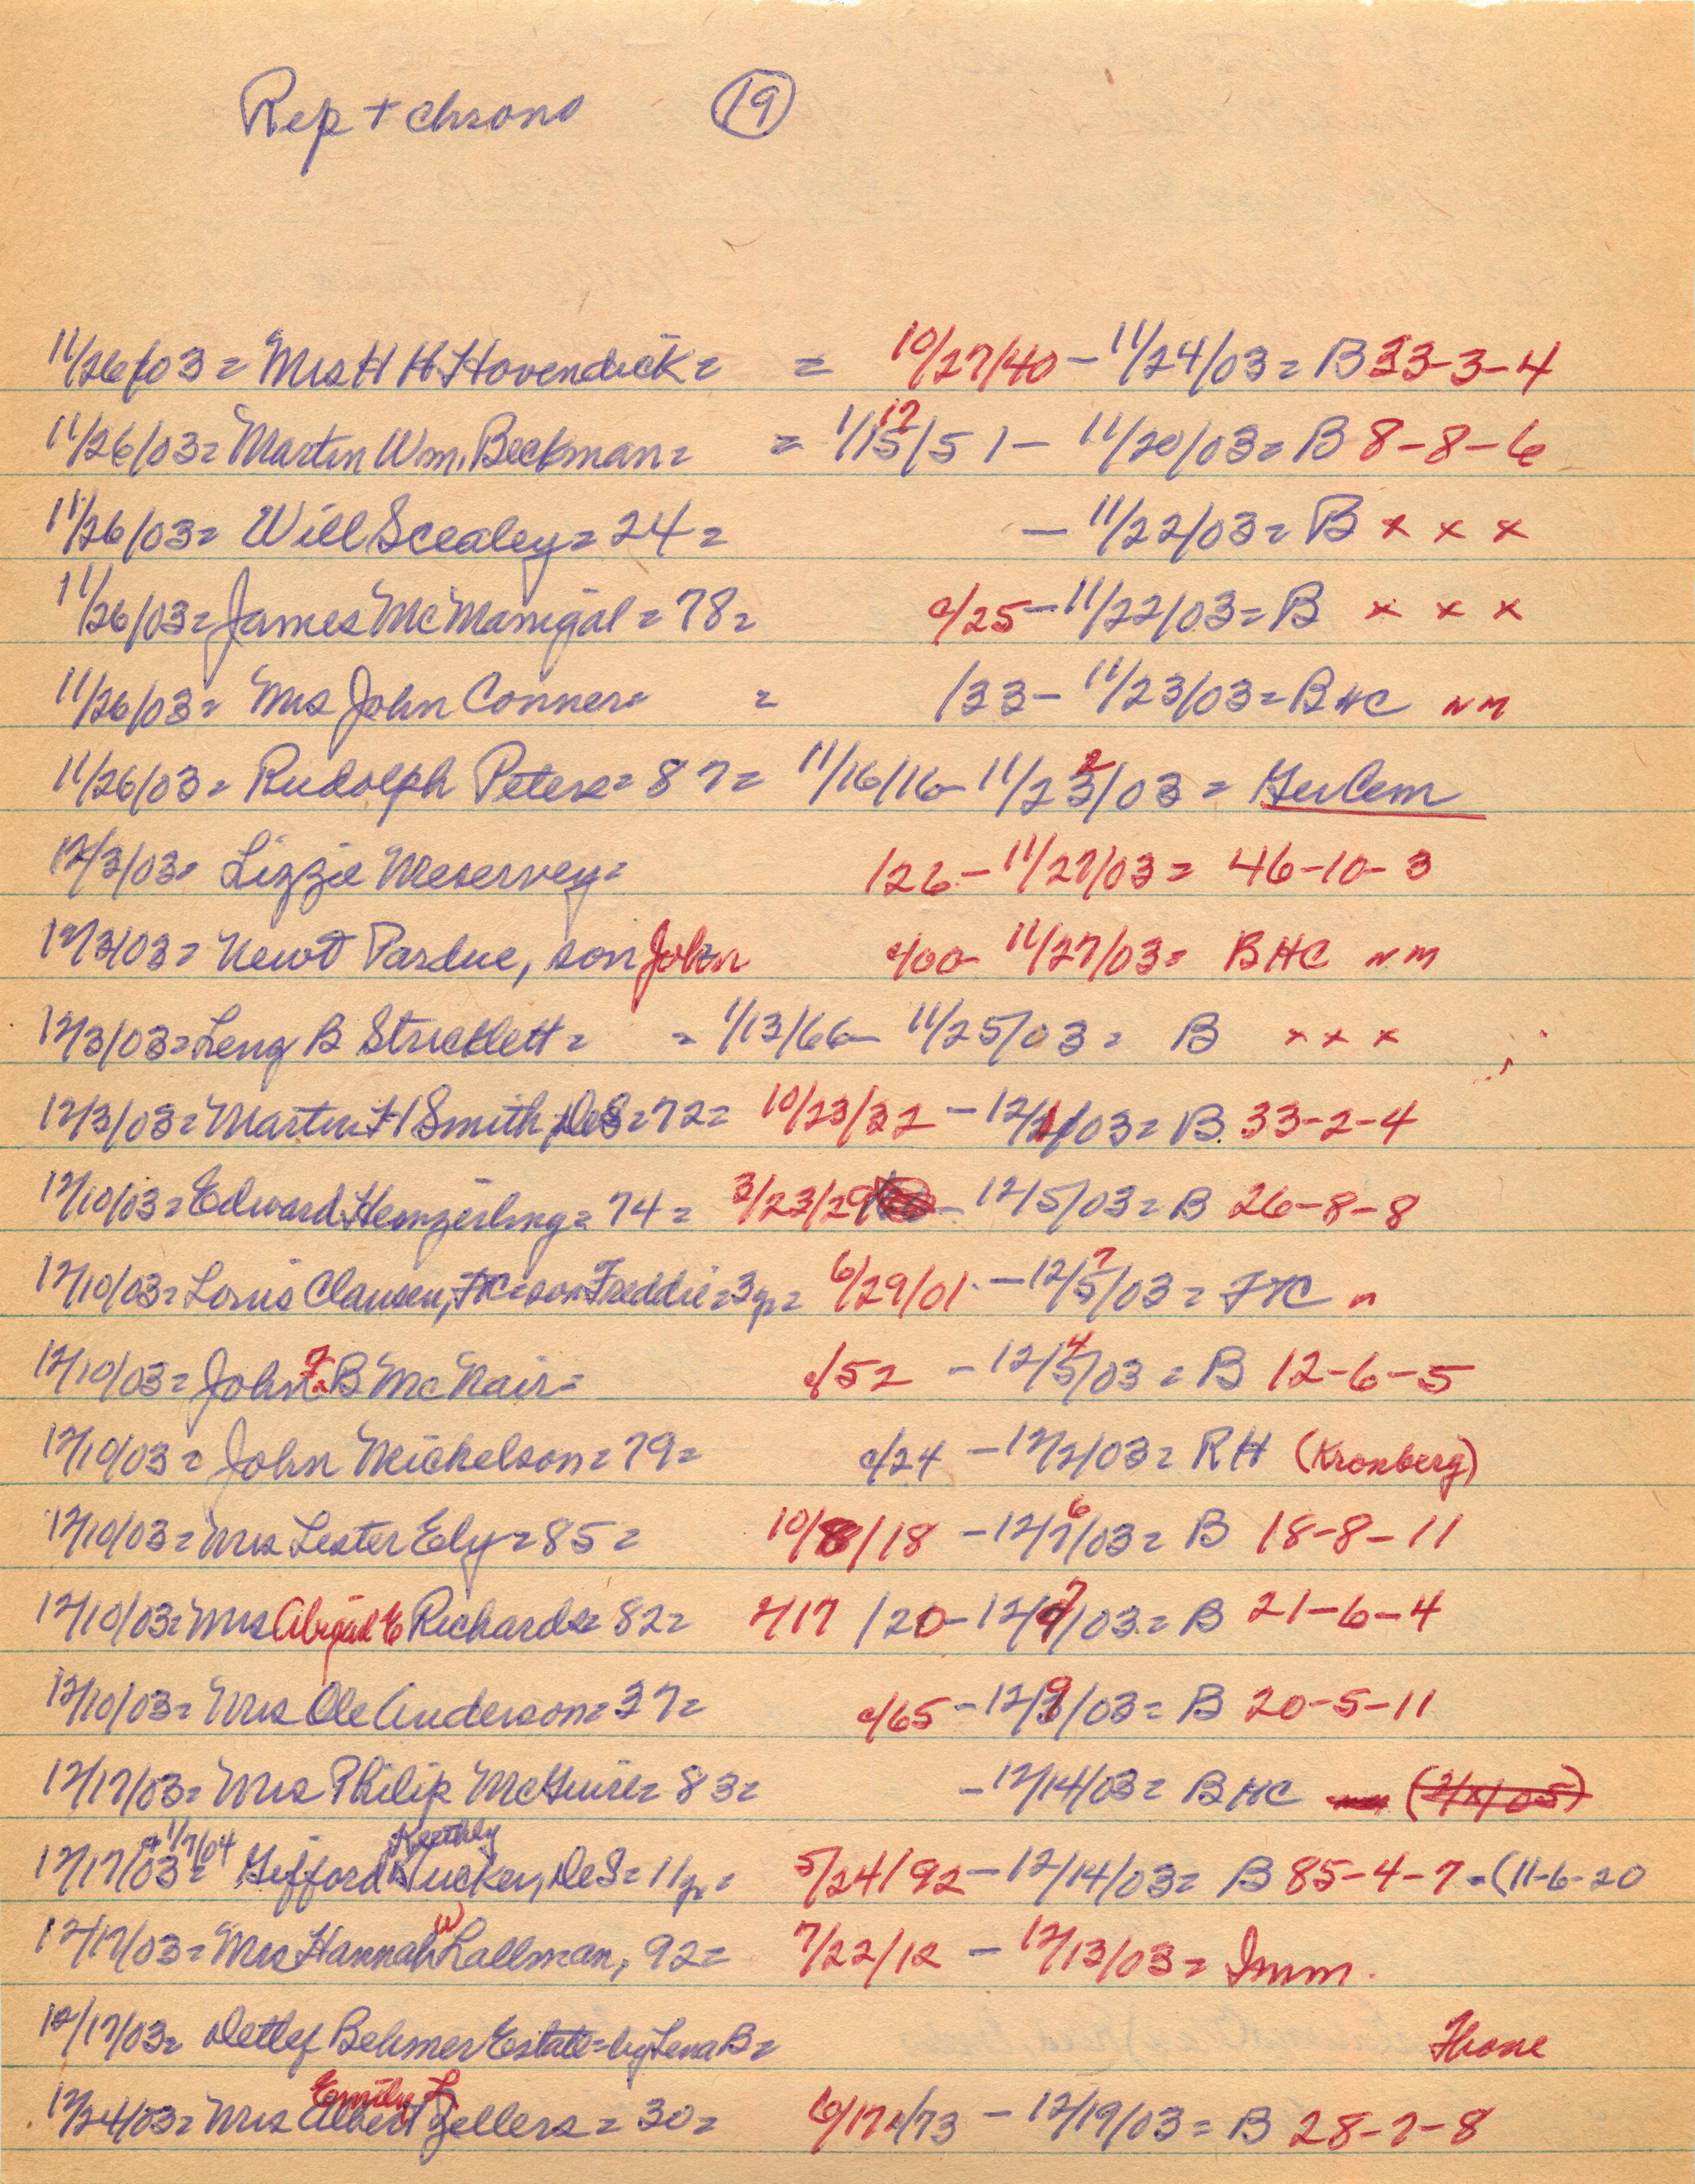 Rep + chrono 19
11/26/03 = Mrs H H Hovendick = = 10/27/40 - 11/24/03 = B 33-3-4
17
11/26/03 = Martin Wm. Beckman = = 1/15/51 - 11/20/03 = B 8-8-6
11/26/03 = Will Scealey = 24 = - 11/22/03 = B x x x
11/26/03 = James McManigal = 78 = c/25 - 11/22/03 = B x x x
11/26/03 = Mrs John Conner = = /33 - 11/23/03 = BHC nm
2
11/26/03 = Rudolph Peters = 87 = 11/16/16 - 11/23/03 = Ger Cem
12/3/03 = Lizzie Meservey = /26 - 11/27/03 = 46-10-3
12/3/03 = Newt Pardue, son John c/00 - 11/27/03 = BHC nm
12/3/03 = Leng B Stricklett = = 1/13/66 - 11/25/03 = B x x x
12/3/03 = Martin H Smith, DeS = 72 = 10/23/32 - 12/1/03 = B 33-2-4
12/10/03 = Edward Hemzerling = 74 = 3/23/29 - 12/5/03 = B 26-8-8
7
12/10/03 = Louis Clausen, FC = son Freddie = 3 yr = 6/29/01 - 12/5/03 = FTC n
4
12/10/03 = John B McNair = c/52 - 12/5/03 = B 12-6-5
12/10/03 = John Mickelson = 79 = c/24 - 12/2/03 = RH (Kronberg)
6
12/10/03 = Mrs Lester Ely = 85 = 10/8/18 - 12/7/03 = B 18-8-11
7
12/10/03 = Mrs Abigail E Richards = 82 = 2/17/20 - 12/9/03 = B 21-6-4
12/10/03 = Mrs Ole Anderson = 37 = c/65 - 12/9/03 = B 20-5-11
12/17/03 = Mrs Philip McGuire = 83 = - 12/14/03 = BHC
+ 1/7/04 Keethly
12/17/03 = Gifford Tucker, DeS = 11 yr = 5/24/92 - 12/14/03 = B 85-4-7 = (11-6-20
(w)
12/17/03 = Mrs Hannah Lallman, 92 = 7/22/12 - 12/13/03 = Imm.
12/17/03 = Detlef Behmer Estate = by Lena B = Thone
Emily L
12/24/03 = Mrs Albert Zellers = 30 = 6/17/73 - 12/19/03 = B 28-7-8